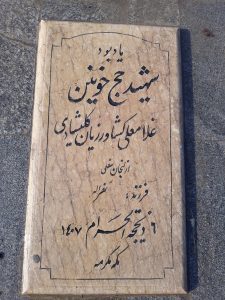 یادبود
شهید حج خونین
غلامعلی کشاورزیان کلیشادی
از لنجان سفلی
فرزند:
۶ ذیحجه الحرام ۱۴۰۷
مکه مکرمه